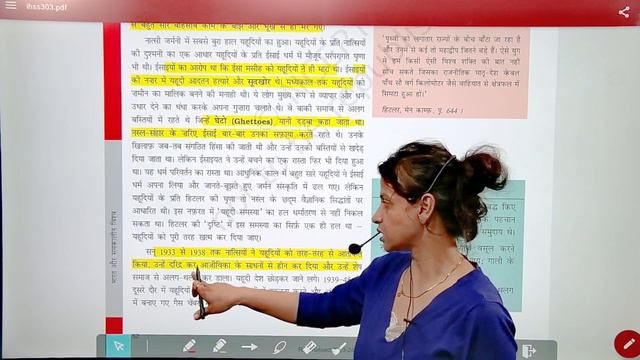 ihss303.pdf
से बहुत सारे बीमारी काम के बोझ और भूख से ही मर गए।
नात्सी जर्मनी में सबसे बुरा हाल यहूदियों का हुआ। यहूदियों के प्रति नात्सियों
की दुश्मनी का एक आधार यहूदियों के प्रति ईसाई धर्म में मौजूद परंपरागत घृणा
भी थी। ईसाइयों का आरोप था कि ईसा मसीह को यहूदियों ने ही मारा था। ईसाइयों
की नज़र में यहूदी आदतन हत्यारे और सूदखोर थे। मध्यकाल तक यहूदियों को
ज़मीन का मालिक बनने की मनाही थी। ये लोग मुख्य रूप से व्यापार और धन
उधार देने का धंधा करके अपना गुज़ारा चलाते थे। वे बाकी समाज से अलग
बस्तियों में रहते थे जिन्हें घेटो (Ghettoes) यानी दड़बा कहा जाता था।
नस्ल-संहार के ज़रिए ईसाई बार-बार उनका सफ़ाया करते रहते थे। उनके
ख़िलाफ़ जब-तब संगठित हिंसा की जाती थी और उन्हें उनकी बस्तियों से खदेड़
दिया जाता था। लेकिन ईसाइयत ने उन्हें बचने का एक रास्ता फिर भी दिया हुआ
था। यह धर्म परिवर्तन का रास्ता था। आधुनिक काल में बहुत सारे यहूदियों ने ईसाई
धर्म अपना लिया और जानते-बूझते हुए जर्मन संस्कृति में ढल गए। लेकिन
यहूदियों के प्रति हिटलर की घृणा तो नस्ल के छद्म वैज्ञानिक सिद्धांतों पर
आधारित थी। इस नफ़रत में 'यहूदी समस्या' का हल धर्मांतरण से नहीं निकल
सकता था। हिटलर की 'दृष्टि' में इस समस्या का सिर्फ़ एक ही हल था –
यहूदियों को पूरी तरह खत्म कर दिया जाए।
सन् 1933 से 1938 तक नात्सियों ने यहूदियों को तरह-तरह से
किया, उन्हें दरिद्र कर आजीविका के साधनों से हीन कर दिया और उन्हें शेष
समाज से अलग- कर डाला। यहूदी देश छोड़कर जाने लगे। 1939-
दूसरे दौर में यहूदियों
में बनाए गए गैस
'पृथ्वी को लगातार राज्यों के बीच बाँटा जा रहा है
और उनमें से कई तो महाद्वीप जितने बड़े हैं। ऐसे युग
में हम किसी ऐसी विश्व शक्ति की बात नहीं
सोच सकते जिसका राजनीतिक मातृ-देश केवल
पाँच सौ वर्ग किलोमीटर जैसे वाहियात से क्षेत्रफल में
सिमटा हुआ हो।'
हिटलर, मेन काम्फ़, पृ. 644।
भारत और समकालीन विश्व